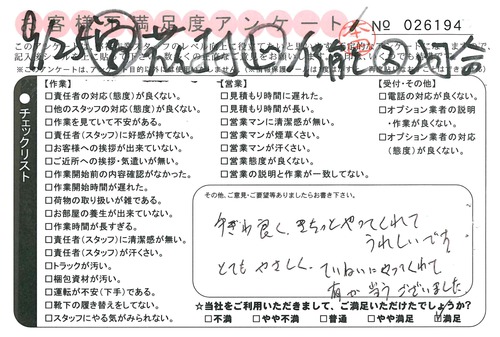 お客様満足度アンケート
№ 026194
チェックリスト
【作業】
□責任者の対応(態度)が良くない。
□他のスタッフの対応(態度)が良くない。
□作業を見ていて不安がある。
□責任者(スタッフ)に好感が持てない。
□お客様への挨拶が出来ていない。
□ご近所への挨拶・気遣いが無い。
□作業開始前の内容確認がなかった。
□作業開始時間が遅れた。
□荷物の取り扱いが雑である。
□お部屋の養生が出来ていない。
□作業時間が長すぎる。
□責任者(スタッフ)に清潔感が無い。
□責任者(スタッフ)が汗くさい。
□トラックが汚い。
□梱包資材が汚い。
□運転が不安(下手)である。
□靴下の履き替えをしてない。
□スタッフにやる気がみられない。
【営業】
□見積もり時間に遅れた。
□見積もり時間が長い。
□営業マンに清潔感が無い。
□営業マンが煙草くさい。
□営業マンが汗くさい。
□営業態度が良くない。
□営業の説明と作業が一致してない。
【受付・その他】
□電話の対応が良くない。
□オプション業者の説明
・作業が良くない。
□オプション業者の対応
(態度)が良くない。
その他、ご意見・ご要望等ありましたらお書き下さい。
手ぎわ良く、きちっとやってくれて
うれしいです
とてもやさしく、ていねいにやってくれて
有が当うございました
☆当社をご利用いただきまして、ご満足いただけたでしょうか?
□不満 □やや不満 □普通 □やや満足 ☑満足